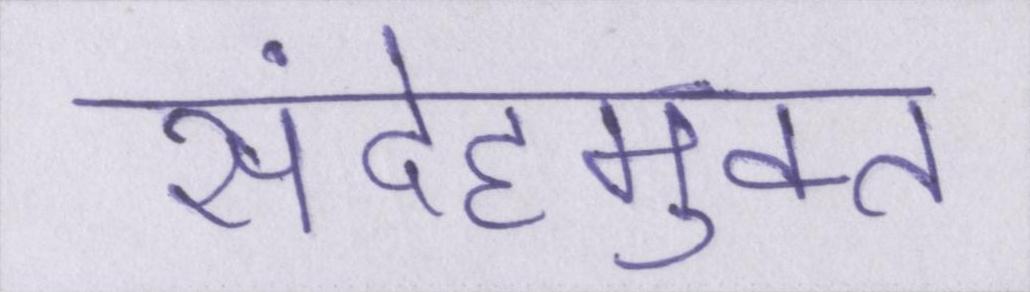 संदेहमुक्त